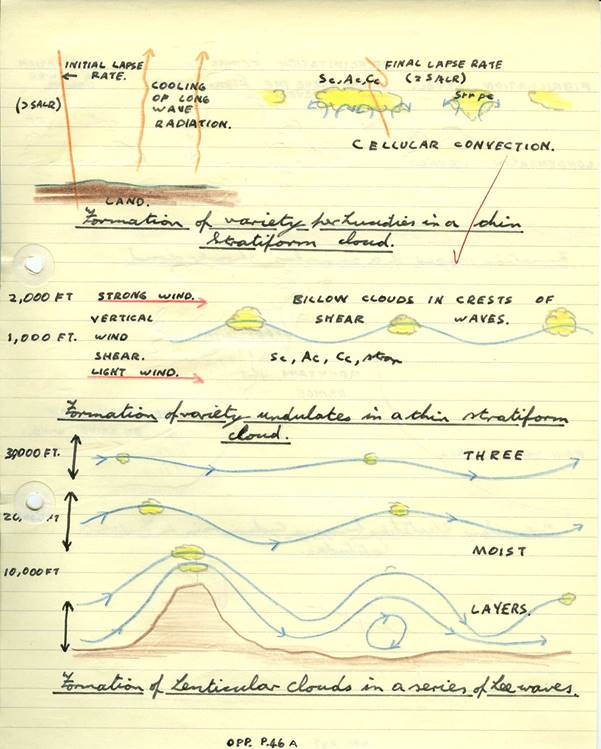 INITIAL LAPSE
RATE.
(>SALR)
COOLING
OF LONG
WAVE
RADIATION.
LAND.
Sc, Ac, Cc
FINAL LAPSE RATE
(≥SALR)
CELLULAR CONVECTION.
Formation of variety in a thin
Stratiform cloud.
2,000 FT
STRONG WIND.
VERTICAL
1,000 FT.
WIND
SHEAR.
LIGHT WIND.
BILLOW CLOUDS IN CRESTS OF
SHEAR WAVES.
Sc, Ac, Cc,
Formation of variety undulates in a thin stratiform
cloud.
30,000 FT.
THREE
FT
MOIST
10,000 FT
LAYERS.
Formation of Lenticular clouds in a series of Lee waves.
OPP. P.46 A